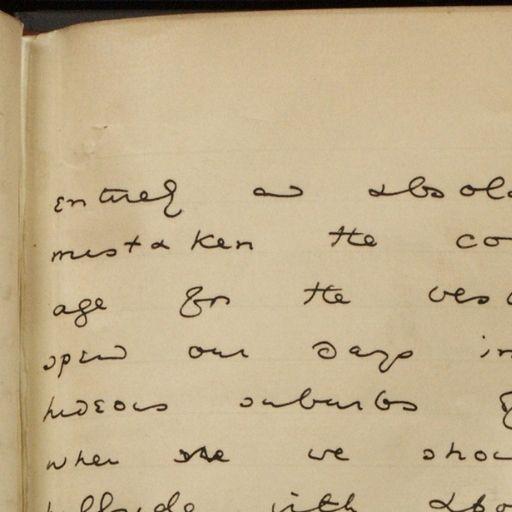 entirely and absol
mistaken the co
age for the
spend our days in
hideous suburbs
when we shou
hillside with